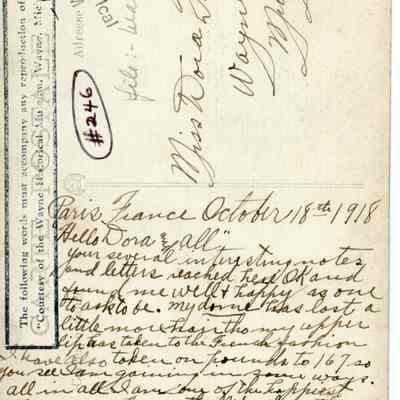 The following words must accompany any reproduction of
"Courtesy of the Wayne Historical Museum, Wayne, Mic
Adresse
file:- 
#246
Miss Dora
Wayne
Paris, France October 18th 1918
Hello Dora and all"
Your several interesting notes
and letters reached here OK and
found me well & happy as one
to ask to be. My dome has lost a
little more hair tho my upper
lip has taken to the French fashion
I have also taken on pounds to 167 so
you see I am gaining in some ways.
all in all I am one of the happiest